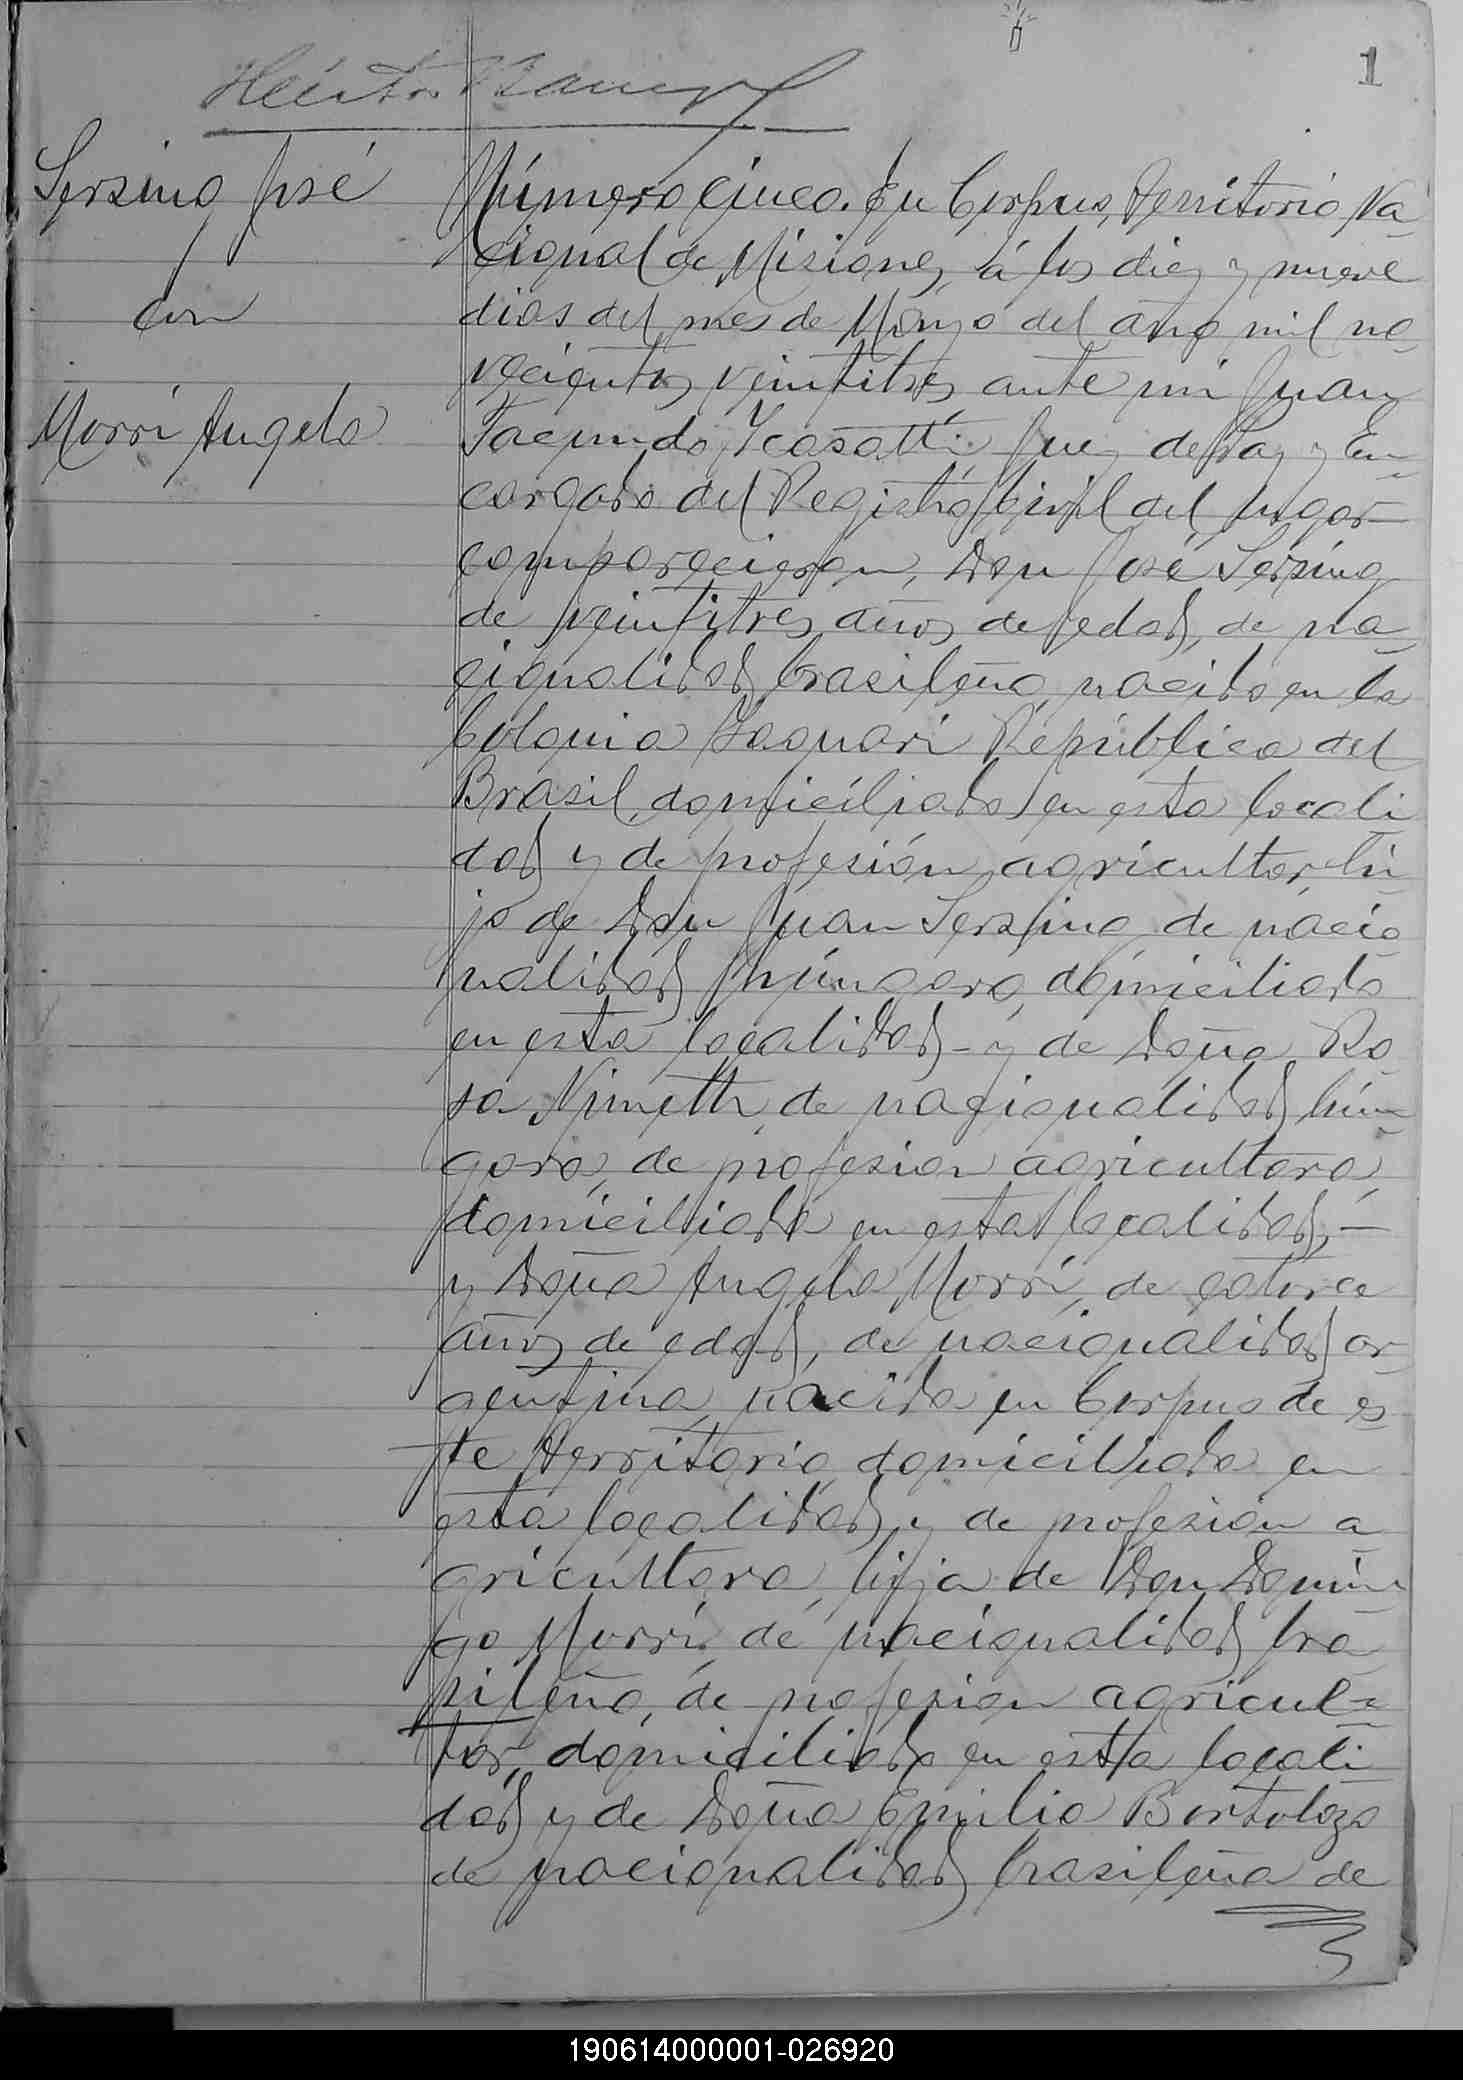 1
Héctor
Sersing José
con
Morri Angela
Número cinco. En Corpus, Territorio Na
cional de Misiones, á los diez y nueve
dias del mes de Marzo del año mil no
vecientos veintitres ante mi Juan
Facundo Ycasatti Juez de Paz y En
cargado del Registro Civil del lugar
comparecieron, Don José Sersing
de veintitres años de edad, de na
cionalidad brasileño nacido en la
Colonia Jaguari República del
Brasil, domiciliado en esta locali
dad y de profesión agricultor, hi
jo de Don Juan Sersing de nacio
nalidad húngaro, domiciliado
en esta localidad - y de Doña Ro
sa Nimeth, de nacionalidad hún
gara, de profesion agricultora,
domiciliada en esta localidad, —
y Doña Angela Morri, de catorce
años de edad, de nacionalidad ar
gentina, nacida en Corpus de es
te Territorio, domiciliada en
esta localidad y de profesion a
gricultora, hija de Don Domin
go Morri, de nacionalidad bra
sileño, de profesion agricul=
tor, domiciliado en esta locali
dad y de Doña Emilia Bortolozo
de nacionalidad brasileña de
190614000001-026920